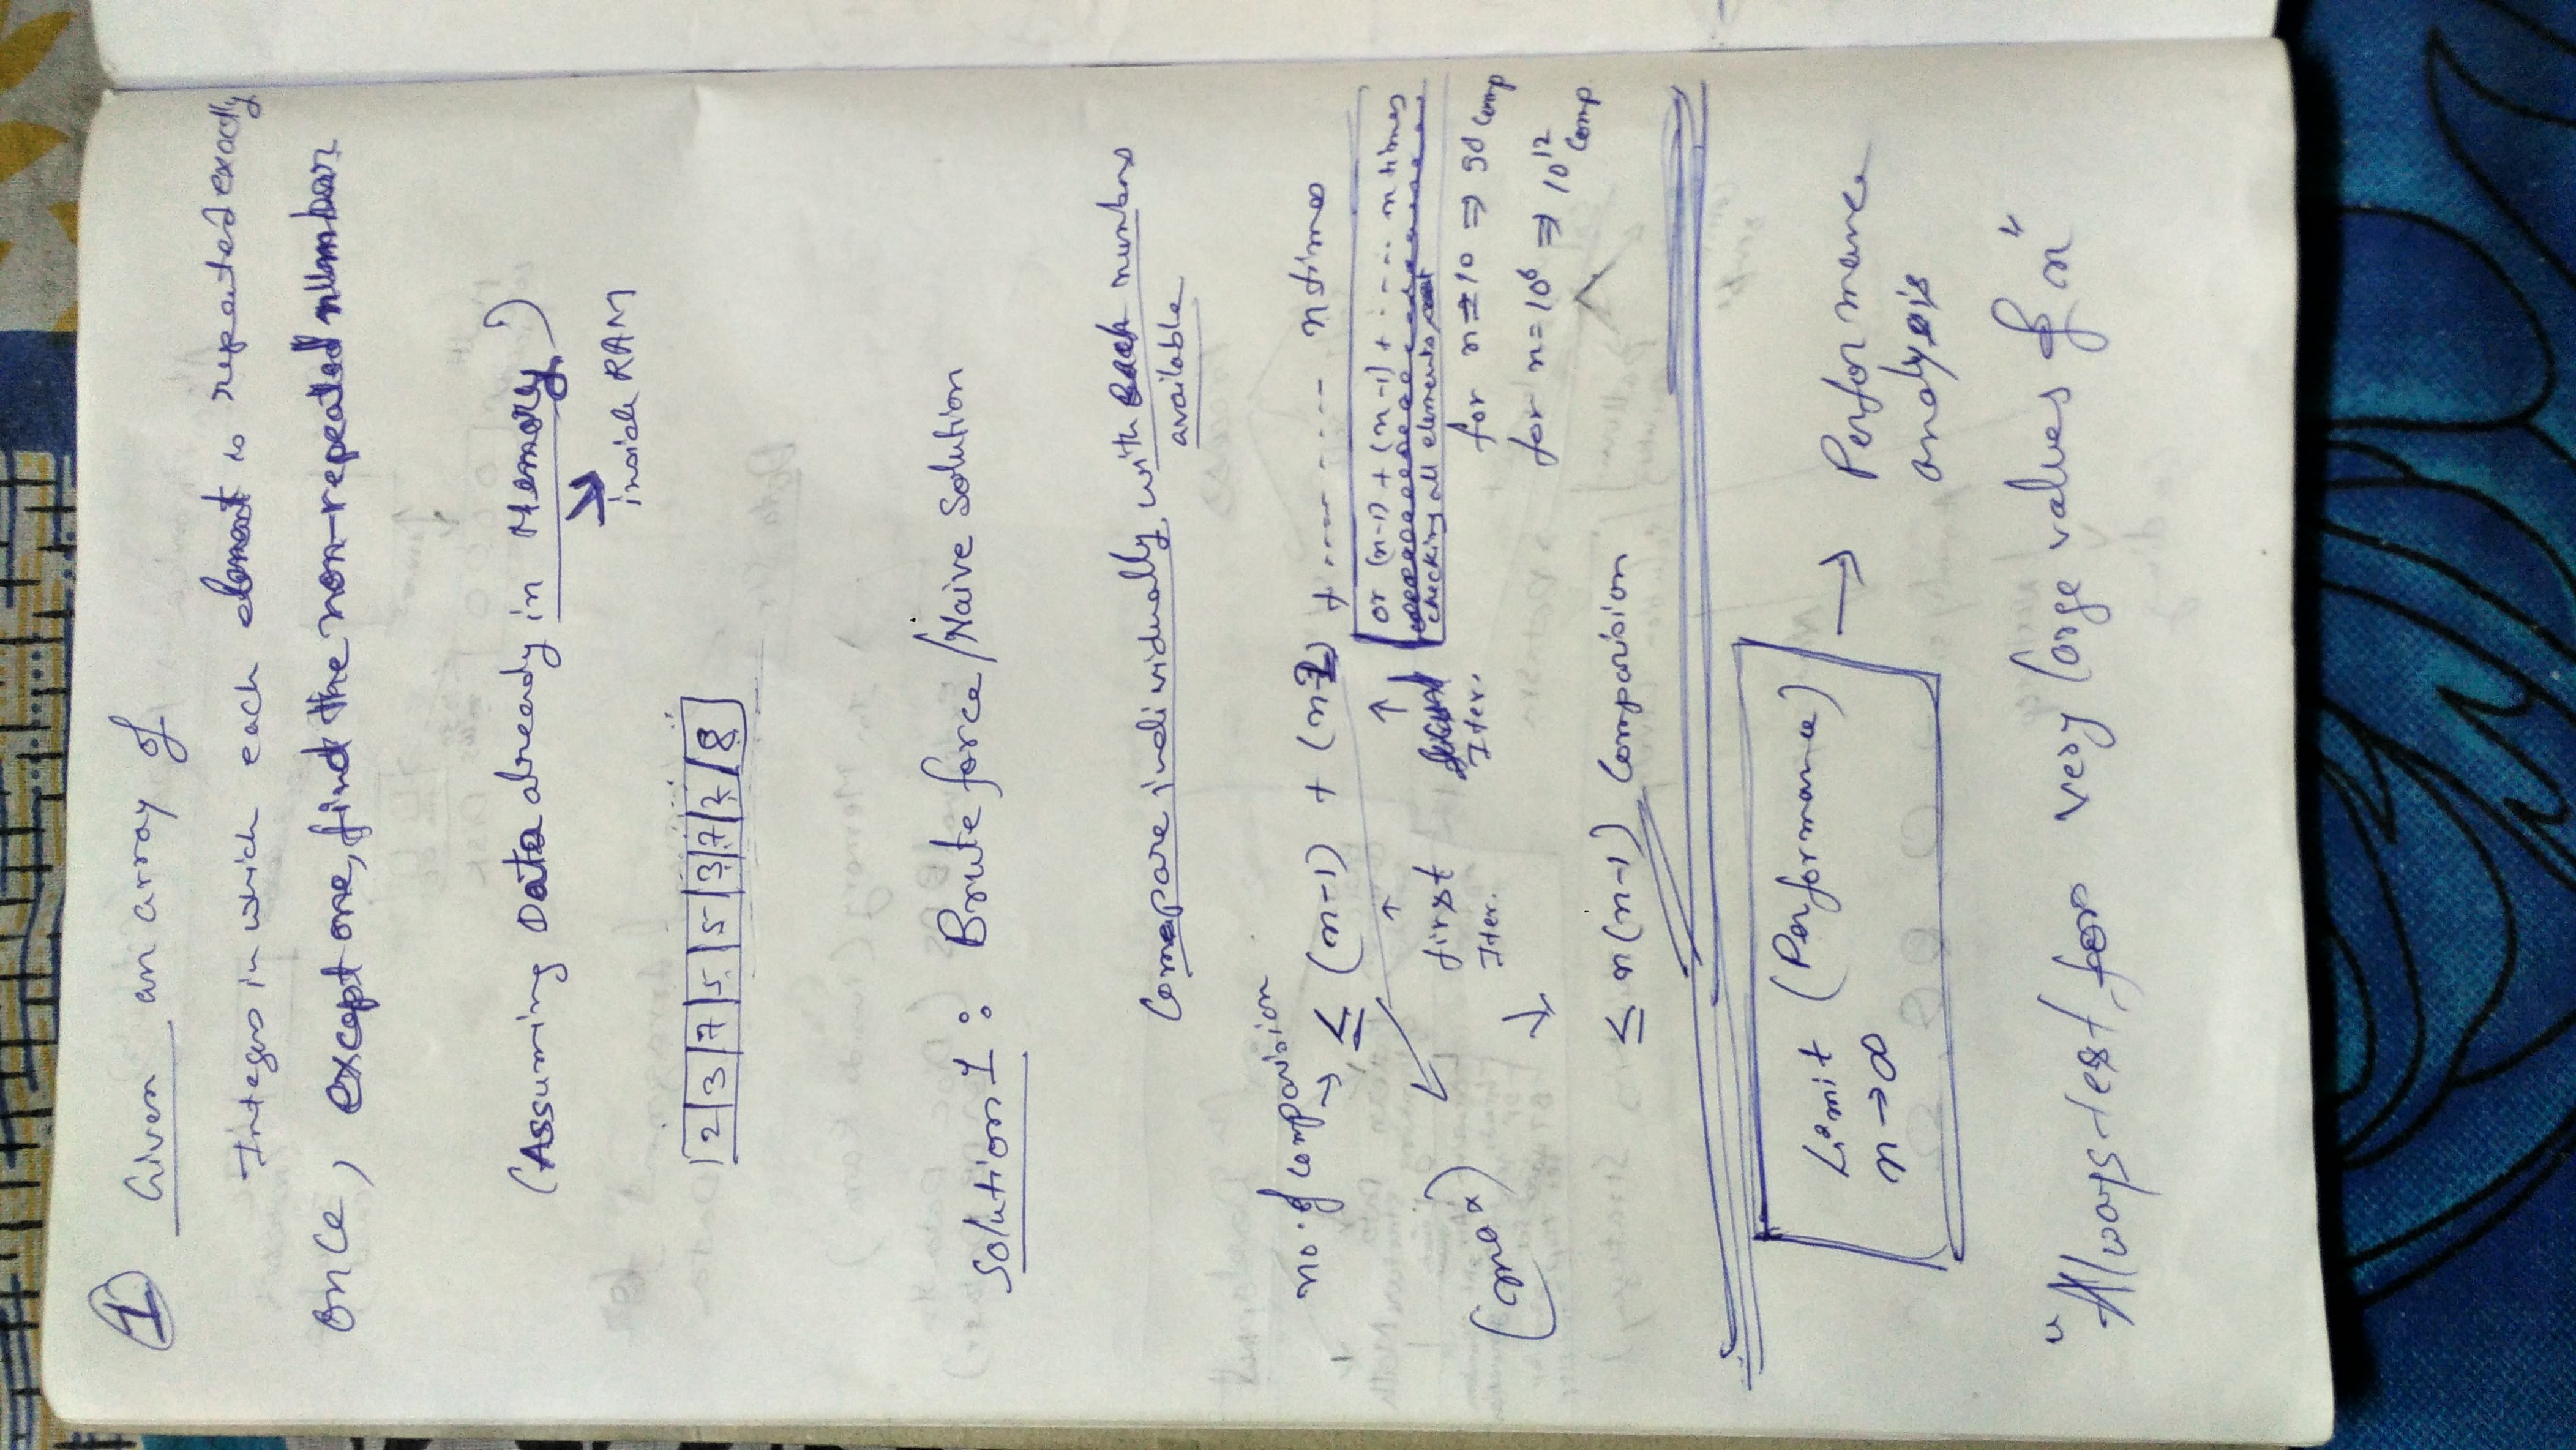 1 Given an array of
Integers in which each element is repeated exactly
once, except one, find the non-repeated number
(Assuming Data already in Memory.)
inside RAM
2 3 7 5 5 3 7 2 8
Solution 1 : Brute force/Naive Solution
Compare individually, with each numbers
available
no. of comparision
→ ≤ (n-1) + (n-2) + ---- ---- n times
or (n-1) + (n-1) + ---- n times
checking all elements
↑ first
Iter.
↑ second
Iter.
for n = 10 ⇒ 90 comp
for n = 10⁶ ⇒ 10¹² comp
(max)
≤ n(n-1) comparision
Limit (Performance) → Performance
n→∞
analysis
"Always test for very large values of n"